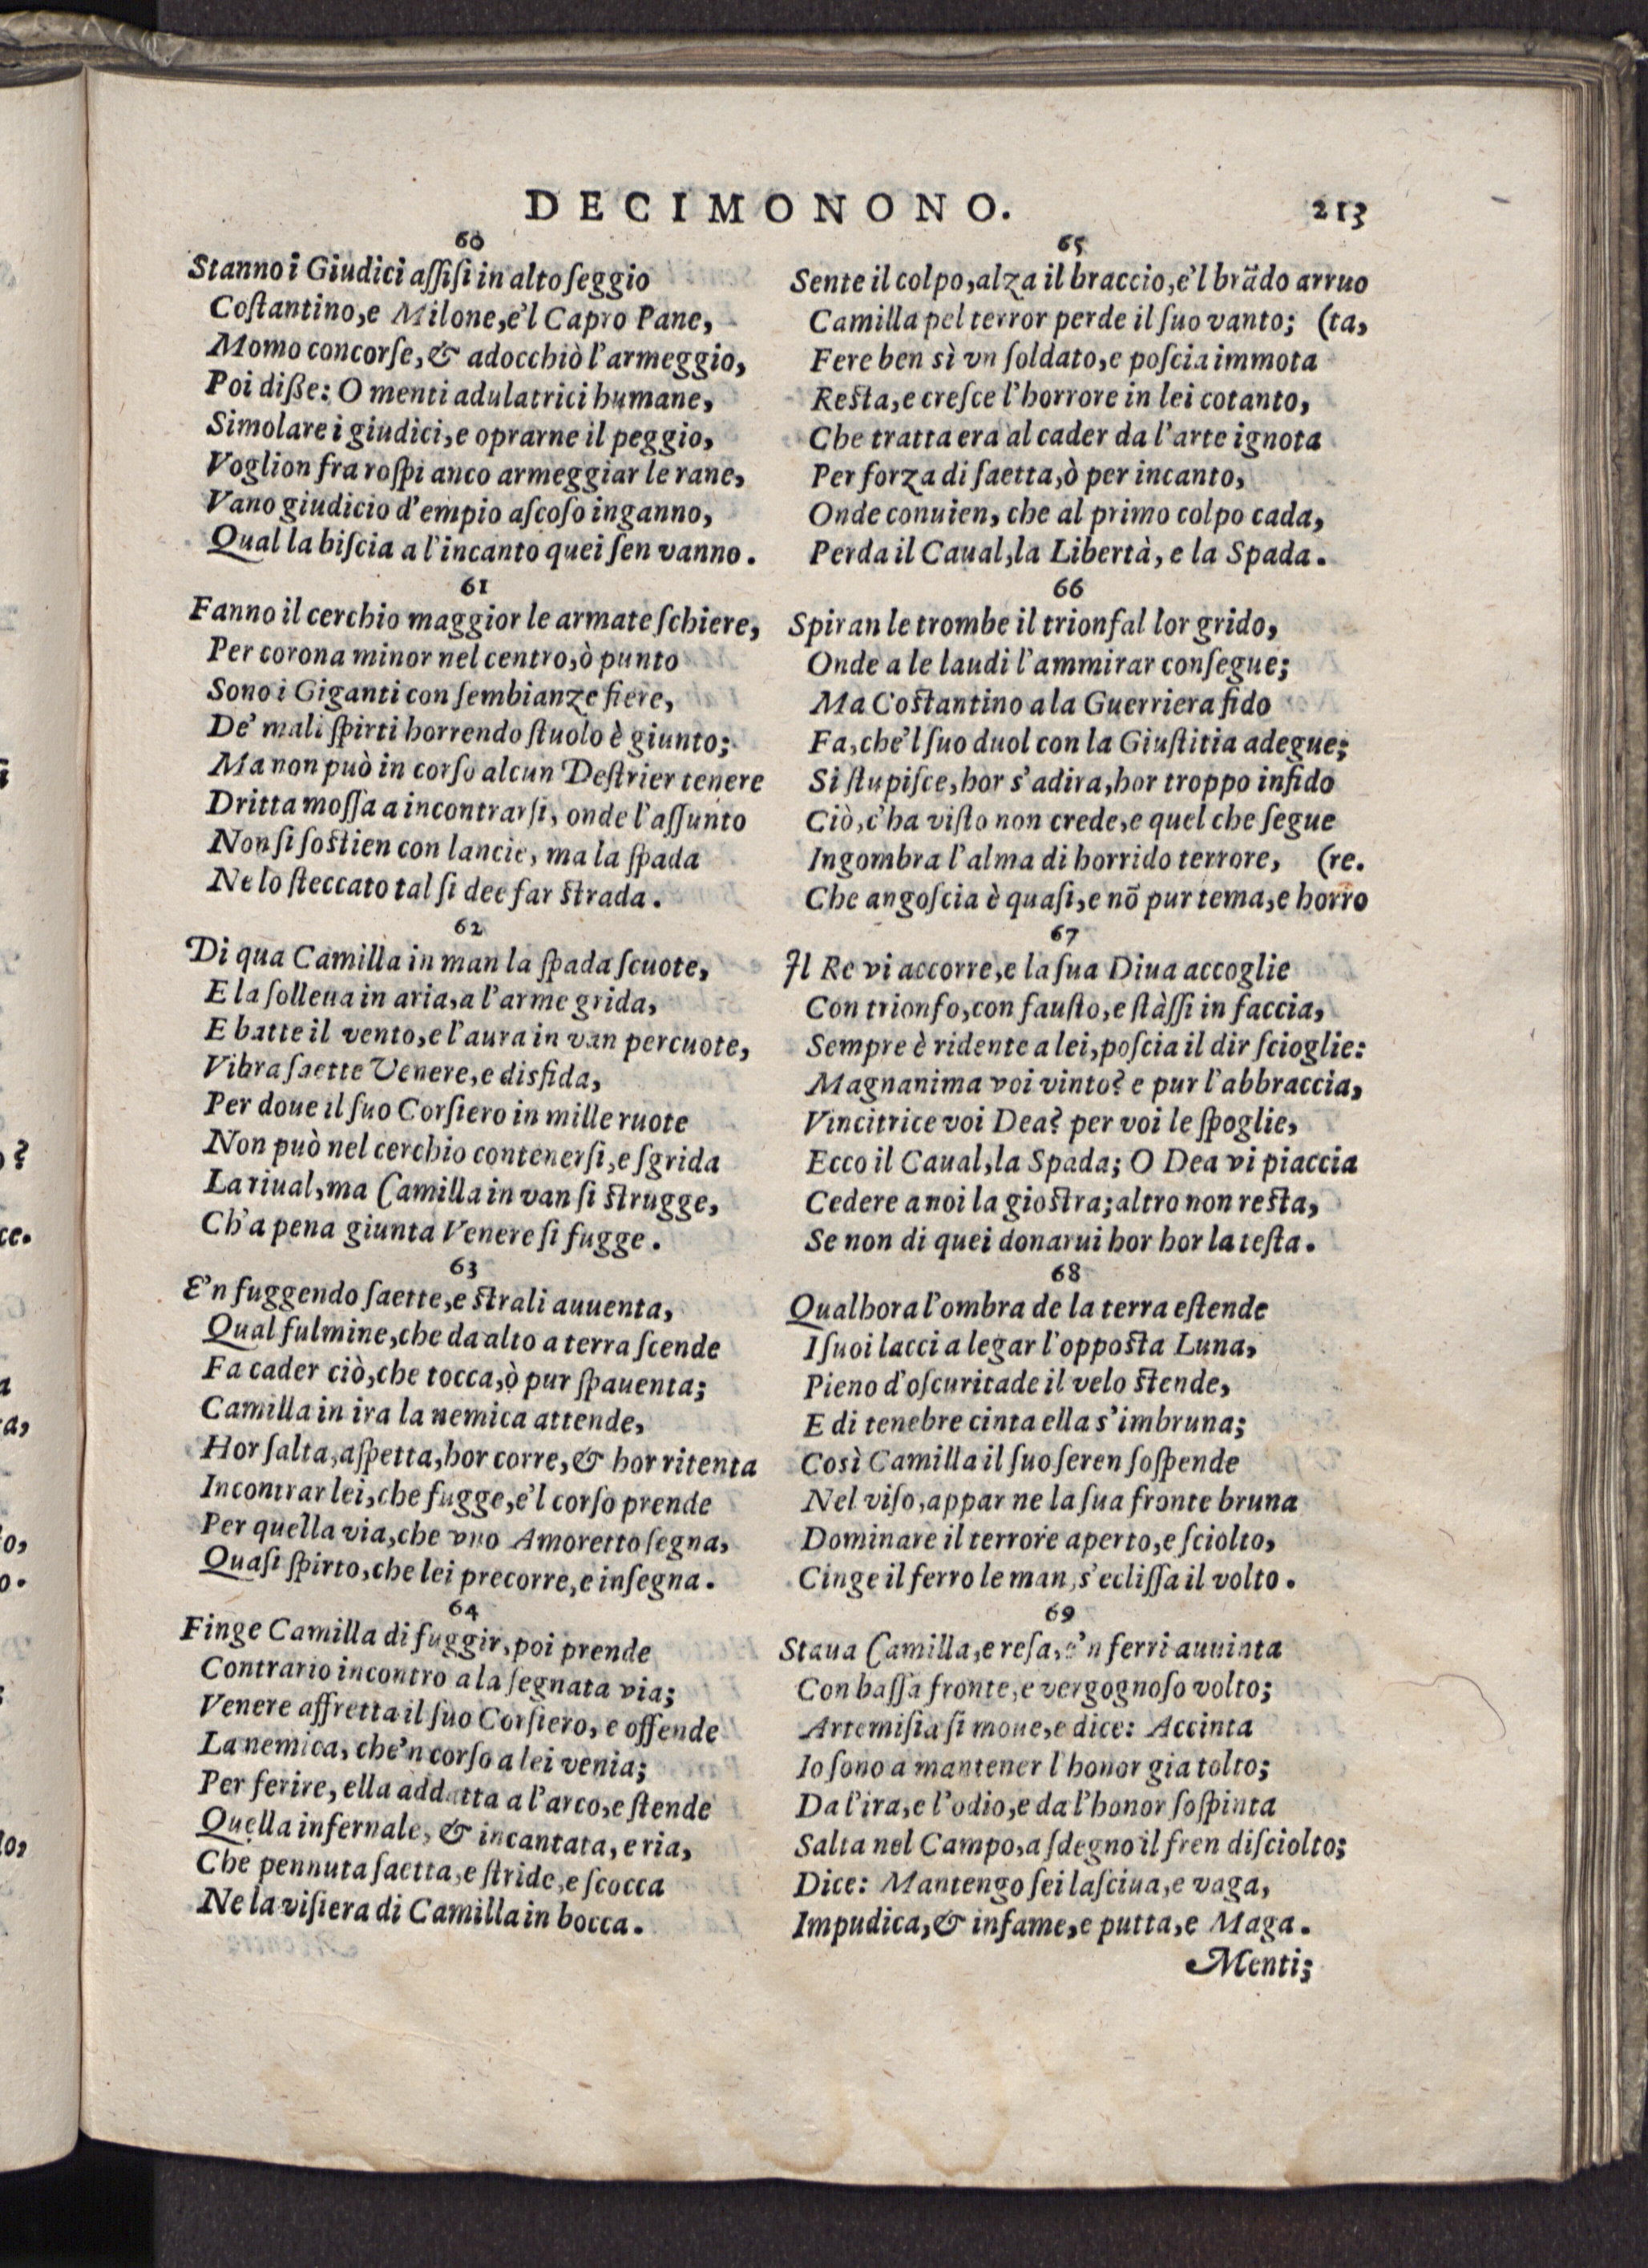 DECIMONONO. 213
60
Stanno i Giudici aſſiſi in alto ſeggio
Coſtantino, e Milone, e'l Capro Pane,
Momo concorſe, & adocchiò l'armeggio,
Poi diſſe: O menti adulatrici humane,
Simolare i giudici, e oprarne il peggio,
Voglion fra roſpi anco armeggiar le rane,
Vano giudicio d'empio aſcoſo inganno,
Qual la biſcia a l'incanto quei ſen vanno.
61
Fanno il cerchio maggior le armate ſchiere,
Per corona minor nel centro, ò punto
Sono i Giganti con ſembianze fiere,
De' mali ſpirti horrendo ſtuolo è giunto;
Ma non può in corſo alcun Deſtrier tenere
Dritta moſſa a incontrarſi, onde l'aſſunto
Non ſi ſoſtien con lancie, ma la ſpada
Ne lo ſteccato tal ſi dee far ſtrada.
62
Di qua Camilla in man la ſpada ſcuote,
E la ſolleua in aria, a l'arme grida,
E batte il vento, e l'aura in van percuote,
Vibra ſaette Venere, e disfida,
Per doue il ſuo Corſiero in mille ruote
Non può nel cerchio contenerſi, e ſgrida
La riual, ma Camilla in van ſi ſtrugge,
Ch'a pena giunta Venere ſi fugge.
63
E'n fuggendo ſaette, e ſtrali auuenta,
Qual fulmine, che da alto a terra ſcende
Fa cader ciò, che tocca, ò pur ſpauenta;
Camilla in ira la nemica attende,
Hor ſalta, aſpetta, hor corre, & hor ritenta
Incontrar lei, che fugge, e'l corſo prende
Per quella via, che vno Amoretto ſegna,
Quaſi ſpirto, che lei precorre, e inſegna.
64
Finge Camilla di fuggir, poi prende
Contrario incontro a la ſegnata via;
Venere affretta il ſuo Corſiero, e offende
La nemica, che'n corſo a lei venia;
Per ferire, ella addatta a l'arco, e ſtende
Quella infernale, & incantata, e ria,
Che pennuta ſaetta, e ſtride, e ſcocca
Ne la viſiera di Camilla in bocca.
65
Sente il colpo, alza il braccio, e'l brādo arruo
Camilla pel terror perde il ſuo vanto; (ta,
Fere ben sì vn ſoldato, e poſcia immota
Reſta, e creſce l'horrore in lei cotanto,
Che tratta era al cader da l'arte ignota
Per forza di ſaetta, ò per incanto,
Onde conuien, che al primo colpo cada,
Perda il Caual, la Libertà, e la Spada.
66
Spiran le trombe il trionfal lor grido,
Onde a le laudi l'ammirar conſegue;
Ma Coſtantino a la Guerriera fido
Fa, che'l ſuo duol con la Giuſtitia adegue;
Si ſtupiſce, hor s'adira, hor troppo infido
Ciò, c'ha viſto non crede, e quel che ſegue
Ingombra l'alma di horrido terrore, (re.
Che angoſcia è quaſi, e nō pur tema, e horro
67
Il Re vi accorre, e la ſua Diua accoglie
Con trionfo, con fauſto, e ſtàſſi in faccia,
Sempre è ridente a lei, poſcia il dir ſcioglie:
Magnanima voi vinto? e pur l'abbraccia,
Vincitrice voi Dea? per voi le ſpoglie,
Ecco il Caual, la Spada; O Dea vi piaccia
Cedere a noi la gioſtra; altro non reſta,
Se non di quei donarui hor hor la teſta.
68
Qualhora l'ombra de la terra eſtende
I ſuoi lacci a legar l'oppoſta Luna,
Pieno d'oſcuritade il velo ſtende,
E di tenebre cinta ella s'imbruna;
Così Camilla il ſuo ſeren ſoſpende
Nel viſo, appar ne la ſua fronte bruna
Dominare il terrore aperto, e ſciolto,
Cinge il ferro le man, s'ecliſſa il volto.
69
Staua Camilla, e reſa, e'n ferri auuinta
Con baſſa fronte, e vergognoſo volto;
Artemiſia ſi moue, e dice: Accinta
Io ſono a mantener l'honor gia tolto;
Da l'ira, e l'odio, e da l'honor ſoſpinta
Salta nel Campo, a ſdegno il fren diſciolto;
Dice: Mantengo ſei laſciua, e vaga,
Impudica, & infame, e putta, e Maga.
Menti;